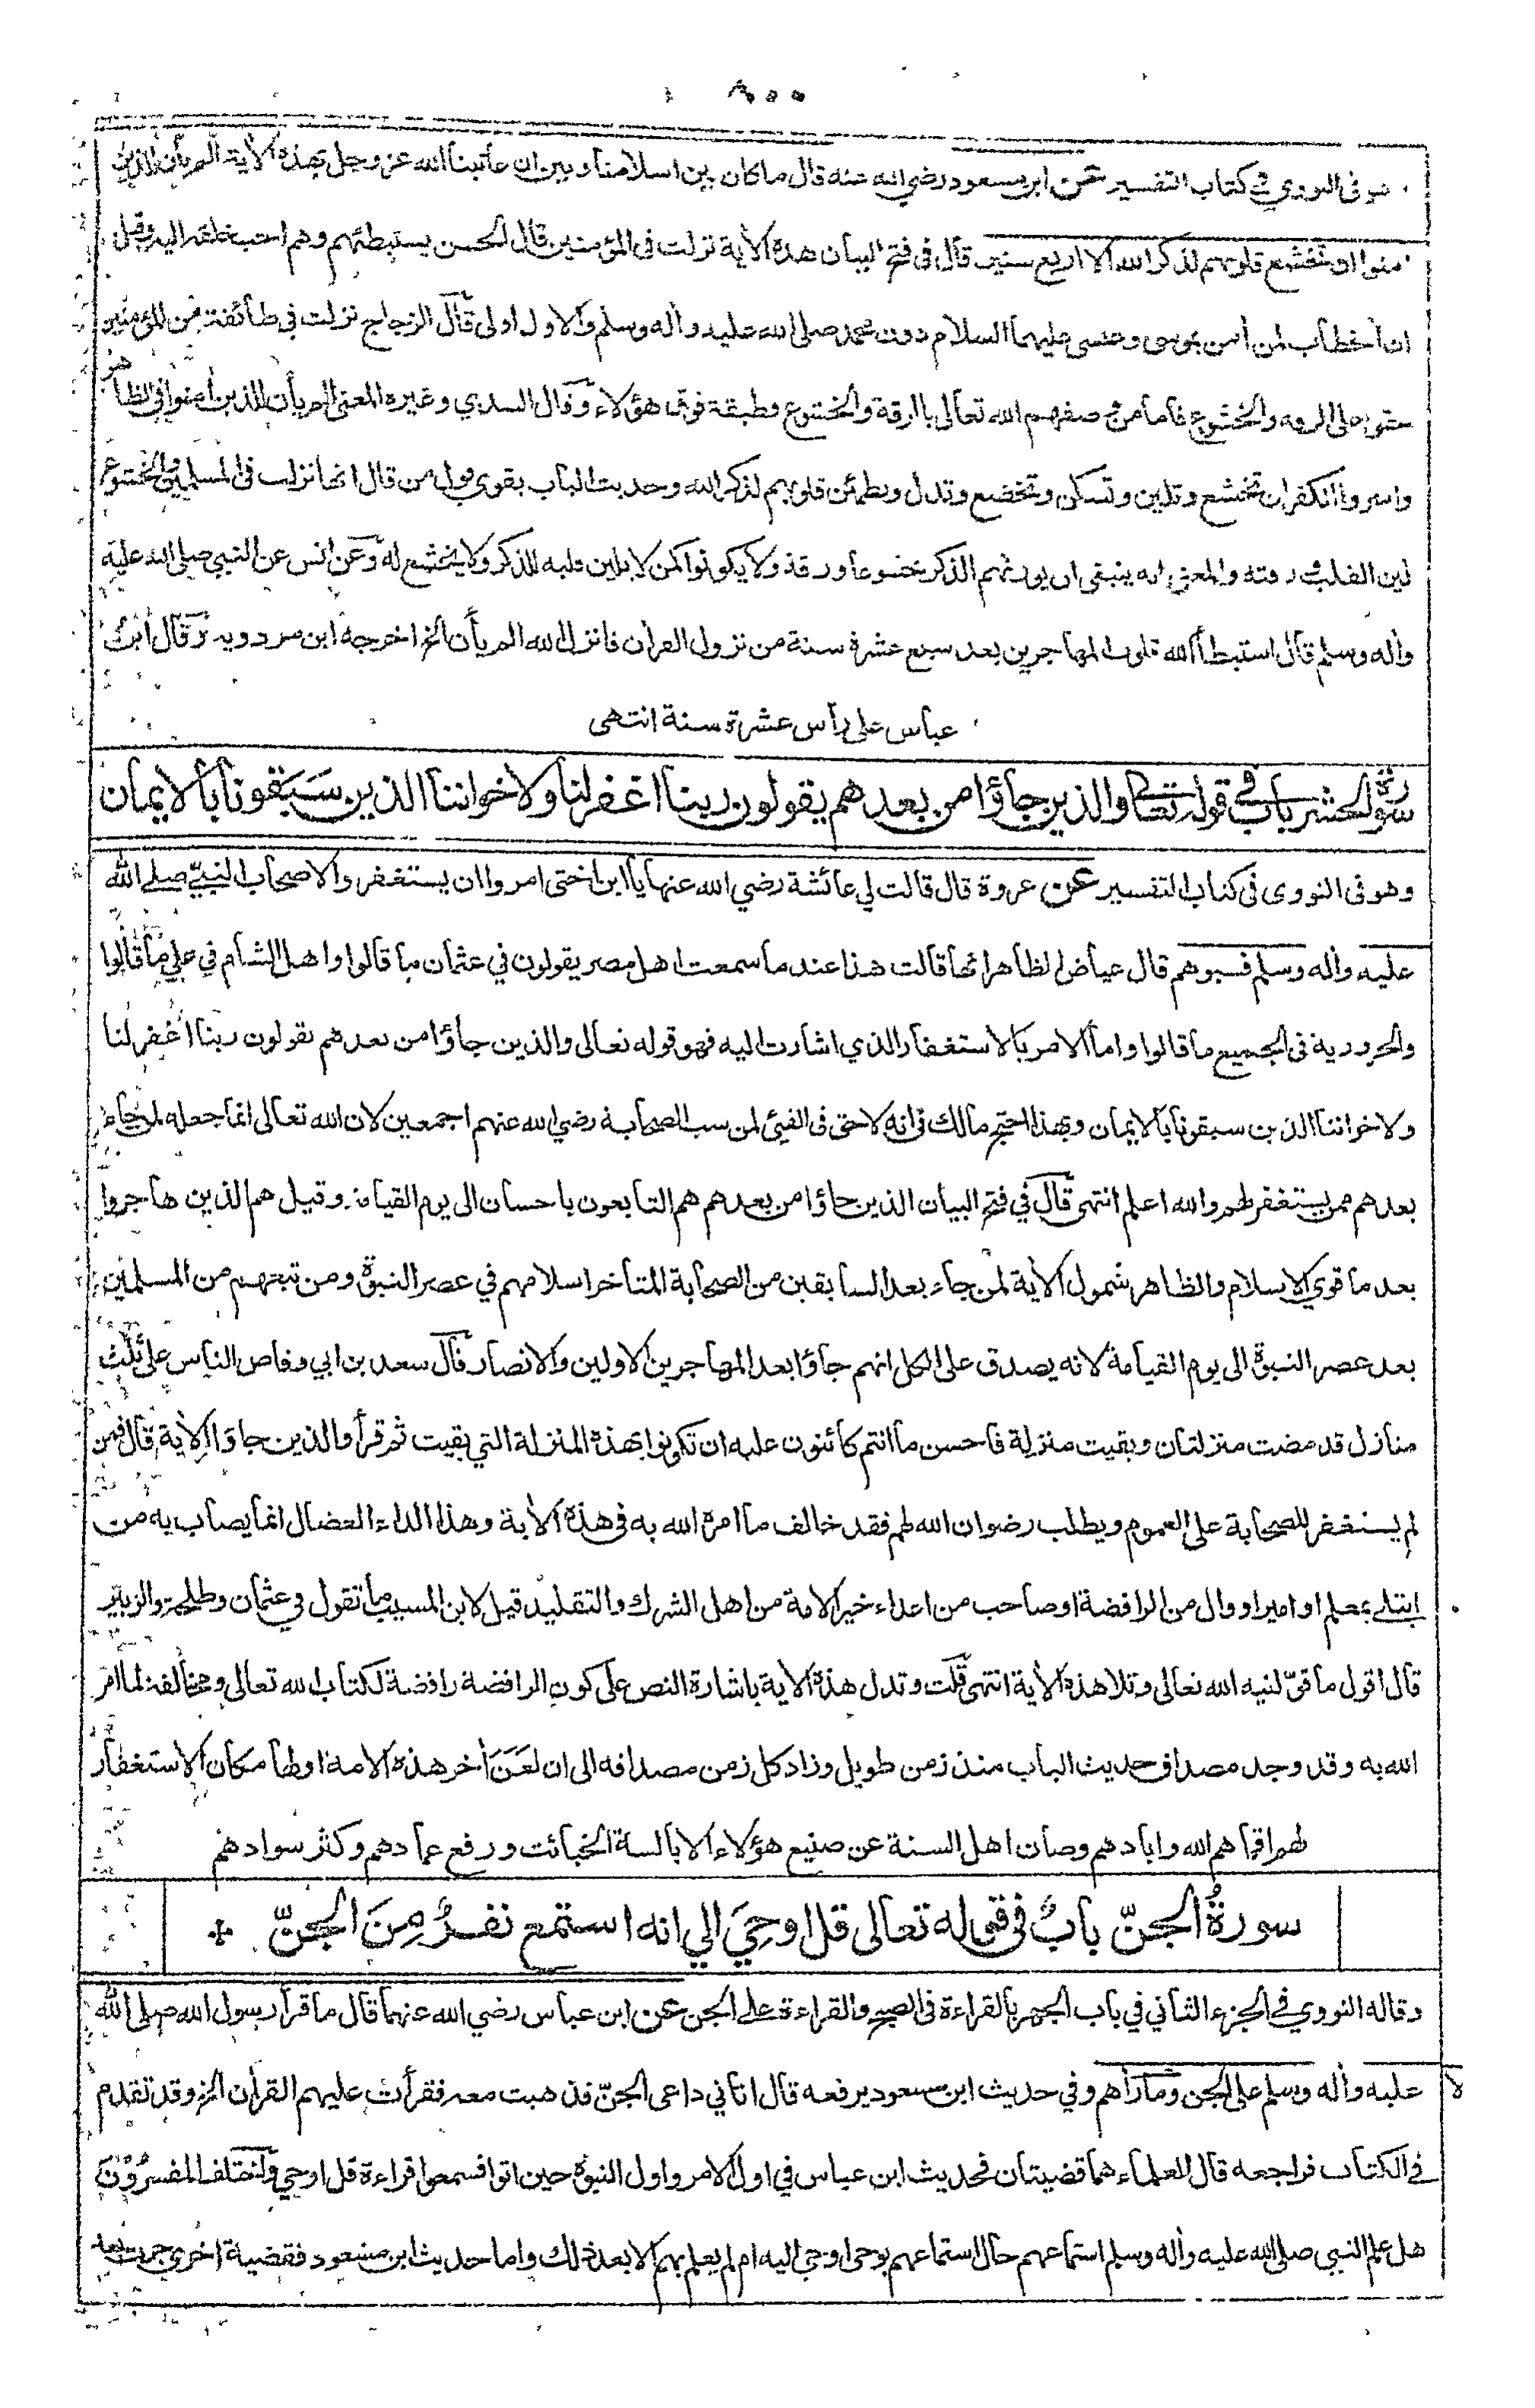 ٨٠٠
هو فى النووي في كتاب التفسير عن ابن مسعود رضي الله عنه قال ما كان بين اسلامنا وبين ان عاتبنا الله عز وجل بهذه الآية الم يأن للذين
آمنوا ان تخشع قلوبهم لذكر الله الا اربع سنين قال في فتح البيان هذه الآية نزلت في المؤمنين قال الحسن يستبطئهم وهم احب خلقه اليه وقيل
ان الخطاب لمن آمن بموسى وعيسى عليهما السلام دون محمد صلى الله عليه وآله وسلم والاول اولى قال الزجاج نزلت في طائفة من المؤمنين
حثوا على الرقة والخشوع فاما من وصفهم الله تعالى بالرقة والخشوع فطبقة فوق هؤلاء وقال السدي وغيره المعنى الم يأن للذين آمنوا في الظاهر
واسروا الكفر ان تخشع وتلين وتسكن وتخضع وتذل وتطمئن قلوبهم لذكر الله وحديث الباب يقوي قول من قال انها نزلت في المسلمين والخشوع
لين القلب ورقته والمعنى انه ينبغي ان يورثهم الذكر خشوعا ورقة ولا يكونوا كمن لا يلين قلبه للذكر ولا يخشع له وعن انس عن النبي صلى الله عليه
وآله وسلم قال استبطأ الله قلوب المهاجرين بعد سبع عشرة سنة من نزول القرآن فانزل الله الم يأن الخ اخرجه ابن مردويه وقال ابن
عباس على رأس عشرة سنة انتهى
سورة الحشر باب في قوله تعالى والذين جاؤا من بعدهم يقولون ربنا اغفر لنا ولاخواننا الذين سبقونا بالايمان
وهو فى النووى فى كتاب التفسير عن عروة قال قالت لي عائشة رضي الله عنها يا ابن اختى امروا ان يستغفروا لاصحاب النبيّ صلى الله
عليه وآله وسلم فسبوهم قال عياض الظاهر انها قالت هذا عند ما سمعت اهل مصر يقولون في عثمان ما قالوا واهل الشام في علي ما قالوا
والحرورية فى الجميع ما قالوا واما الامر بالاستغفار الذي اشارت اليه فهو قوله تعالى والذين جاؤا من بعدهم يقولون ربنا اغفر لنا
ولاخواننا الذين سبقونا بالايمان وبهذا احتج مالك في انه لا حق فى الفيئ لمن سب الصحابة رضي الله عنهم اجمعين لان الله تعالى انما جعله لمن جاء
بعدهم ممن يستغفر لهم والله اعلم انتهى قال في فتح البيان الذين جاؤا من بعدهم هم التابعون باحسان الى يوم القيامة وقيل هم الذين هاجروا
بعد ما قوي الاسلام والظاهر شمول الآية لمن جاء بعد السابقين من الصحابة المتأخر اسلامهم في عصر النبوة ومن تبعهم من المسلمين
بعد عصر النبوة الى يوم القيامة لانه يصدق على الكل انهم جاؤا بعد المهاجرين الاولين والانصار قال سعد بن ابي وقاص الناس على ثلث
منازل قد مضت منزلتان وبقيت منزلة فاحسن ما انتم كائنون عليه ان تكونوا بهذه المنزلة التي بقيت ثم قرأ والذين جاؤا الآية قال فمن
لم يستغفر للصحابة على العموم ويطلب رضوان الله لهم فقد خالف ما امره الله به فى هذه الآية وهذا الداء العضال انما يصاب به من
ابتلي بمعلم او امير او وال من الرافضة او صاحب من اعداء خير الامة من اهل الشرك والتقليد قيل لابن المسيب ما تقول في عثمان وطلحة والزبير
قال اقول ما قوّلنيه الله تعالى وتلا هذه الآية انتهى قلت وتدل هذه الآية باشارة النص على كون الرافضة رافضة لكتاب الله تعالى ومخالفة لما امر
الله به وقد وجد مصداق حديث الباب منذ زمن طويل وزاد كل زمن مصداقه الى ان لَعَنَ آخر هذه الامة اولها مكان الاستغفار
لهم اقماهم الله وابادهم وصان اهل السنة عن صنيع هؤلاء الابالسة الخبائث ورفع عمادهم وكثر سوادهم
سورةُ الجنّ بابٌ فى قوله تعالى قل اوحِيَ الي انه استمع نفرٌ مِنَ الجنّ
وقاله النووي في الجزء الثاني في باب الجهر بالقراءة فى الصبح والقراءة على الجن عن ابن عباس رضي الله عنهما قال ما قرأ رسول الله صلى الله
عليه وآله وسلم على الجن وما رآهم وفي حديث ابن مسعود يرفعه قال اتاني داعى الجنّ فذهبت معه فقرأت عليهم القرآن الخ وقد تقدم
لا
في الكتاب فراجعه قال العلماء هما قضيتان فحديث ابن عباس في اول الامر واول النبوة حين اتوا فسمعوا قراءة قل اوحي واختلف المفسرون
هل علم النبي صلى الله عليه وآله وسلم استماعهم حال استماعهم بوحي اوحي اليه ام لم يعلم بهم الا بعد ذلك واما حديث ابن مسعود فقضية اخرى جرت بعد